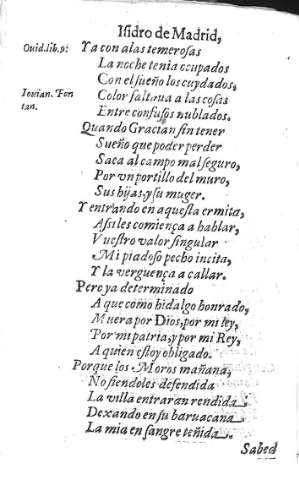 Isidro de Madrid,
Ouid.lib.9:
Ya con alas temerosas
La noche tenia ocupados
Con el sueño los cuydados,
Iouian. Pon
tan.
Color faltaua a las cosas
Entre confusos nublados.
Quando Gracian sin tener
Sueño que poder perder
Saca al campo mal seguro,
Por vn portillo del muro,
Sus hijas, y su muger.
Y entrando en aquesta ermita,
Assi les comiença a hablar,
Vuestro valor singular
Mi piadoso pecho incita,
Y la verguença a callar.
Pero ya determinado
A que como hidalgo honrado,
Muera por Dios, por mi ley,
Por mi patria, y por mi Rey,
A quien estoy obligado.
Porque los Moros mañana,
No siendoles defendida
La villa entraran rendida:
Dexando en su baruacana
La mia en sangre teñida.
Sabed